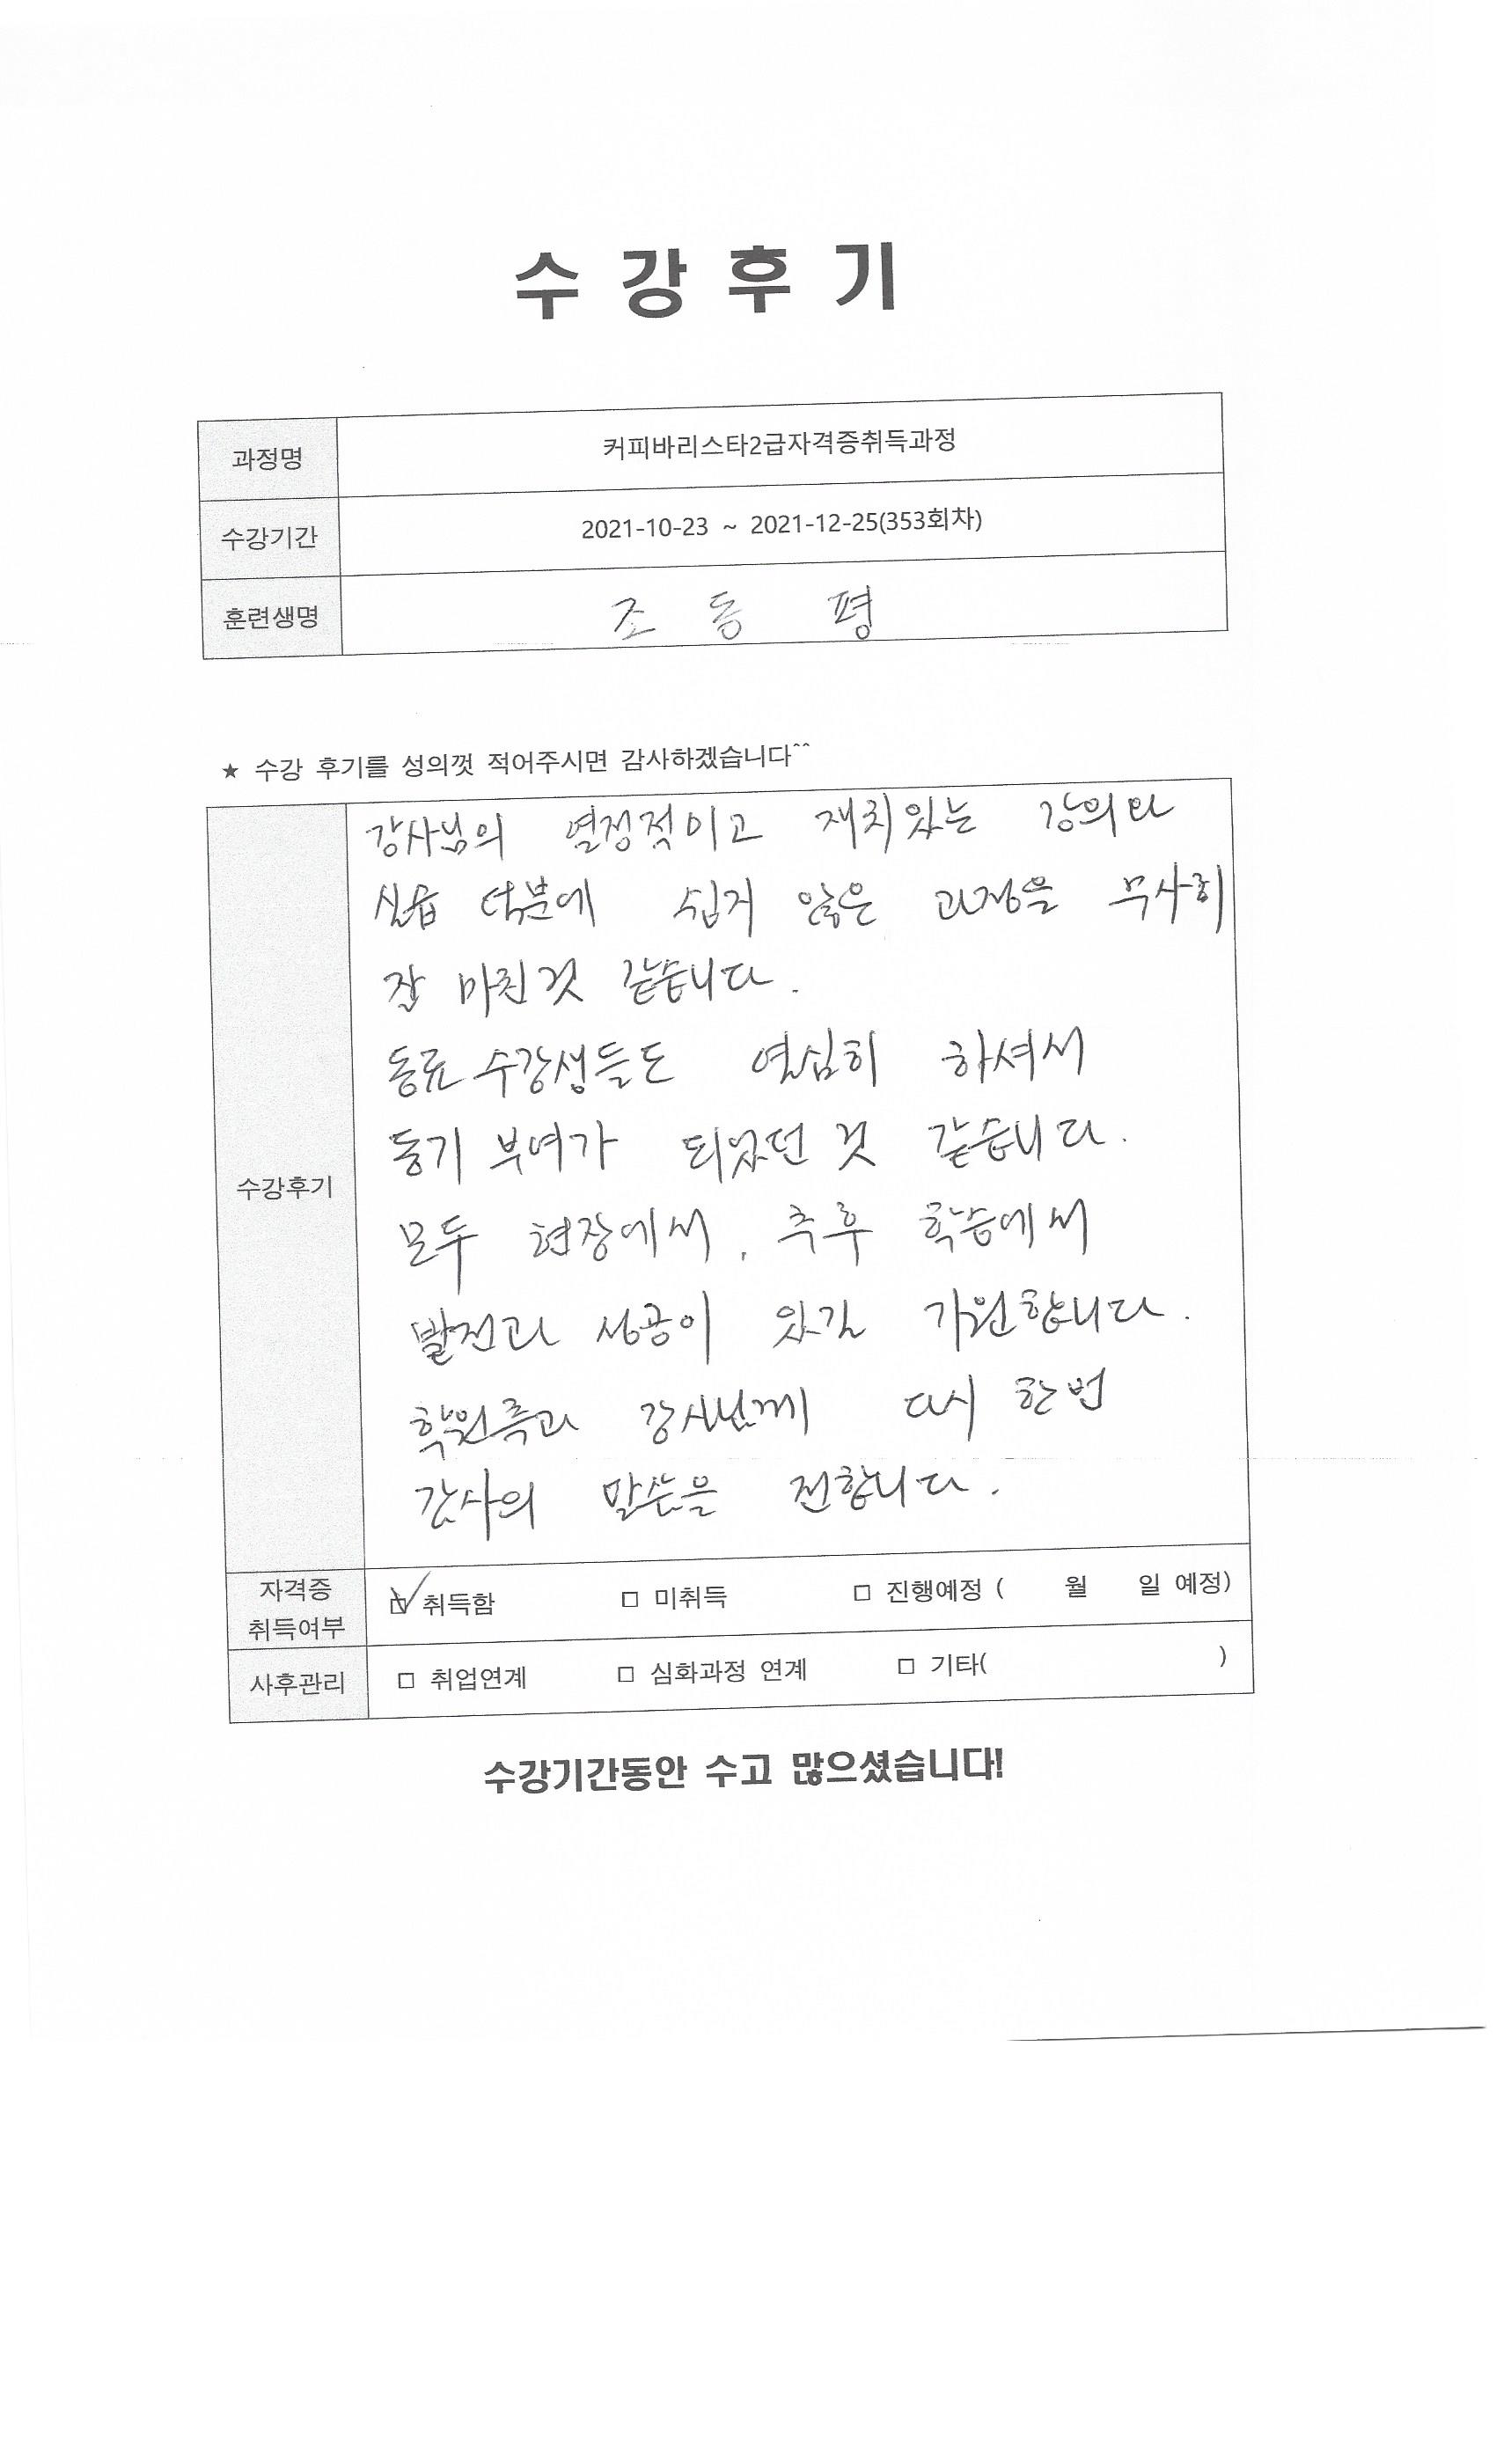 수 강 후 기
과정명 커피바리스타2급자격증취득과정
수강기간 2021-10-23 ~ 2021-12-25(353회차)
훈련생명 조 동 평
★ 수강 후기를 성의껏 적어주시면 감사하겠습니다^^
강사님의 열정적이고 재치있는 강의와
실습 덕분에 쉽지 않은 과정을 무사히
잘 마친것 같습니다.
동료 수강생들도 열심히 하셔서
동기 부여가 되었던 것 같습니다.
수강후기
모두 현장에서, 추후 학습에서
발전과 성공이 있길 기원합니다.
학원측과 강사님께 다시 한번
감사의 말씀을 전합니다.
자격증
취득여부 ☑ 취득함 □ 미취득 □ 진행예정 ( 월 일 예정)
사후관리 □ 취업연계 □ 심화과정 연계 □ 기타( )
수강기간동안 수고 많으셨습니다!